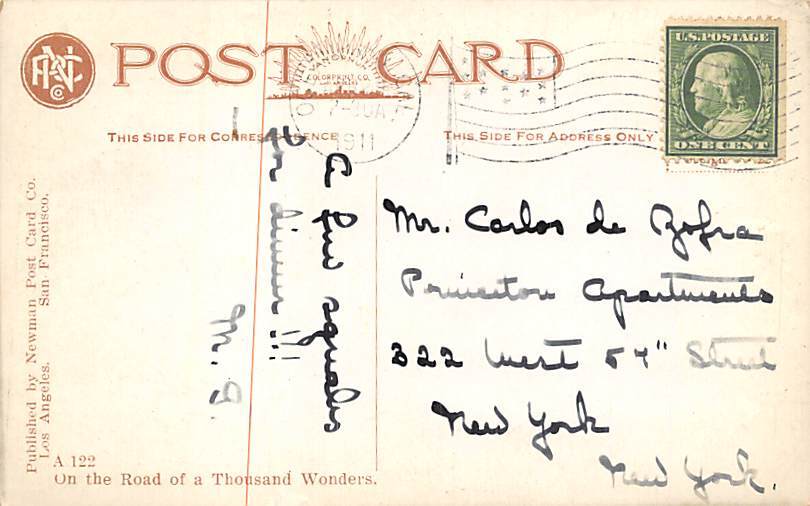 POST CARD
THIS SIDE FOR CORRESPONDENCE
THIS SIDE FOR ADDRESS ONLY
COLORPRINT CO.
1911
U.S. POSTAGE
ONE CENT
A few squabs
for dinner!!!
M. G.
Mr. Carlos de Zofra
Princeton Apartments
322 West 57" Street
New York
New York.
Published by Newman Post Card Co.
Los Angeles. San Francisco.
A 122
On the Road of a Thousand Wonders.